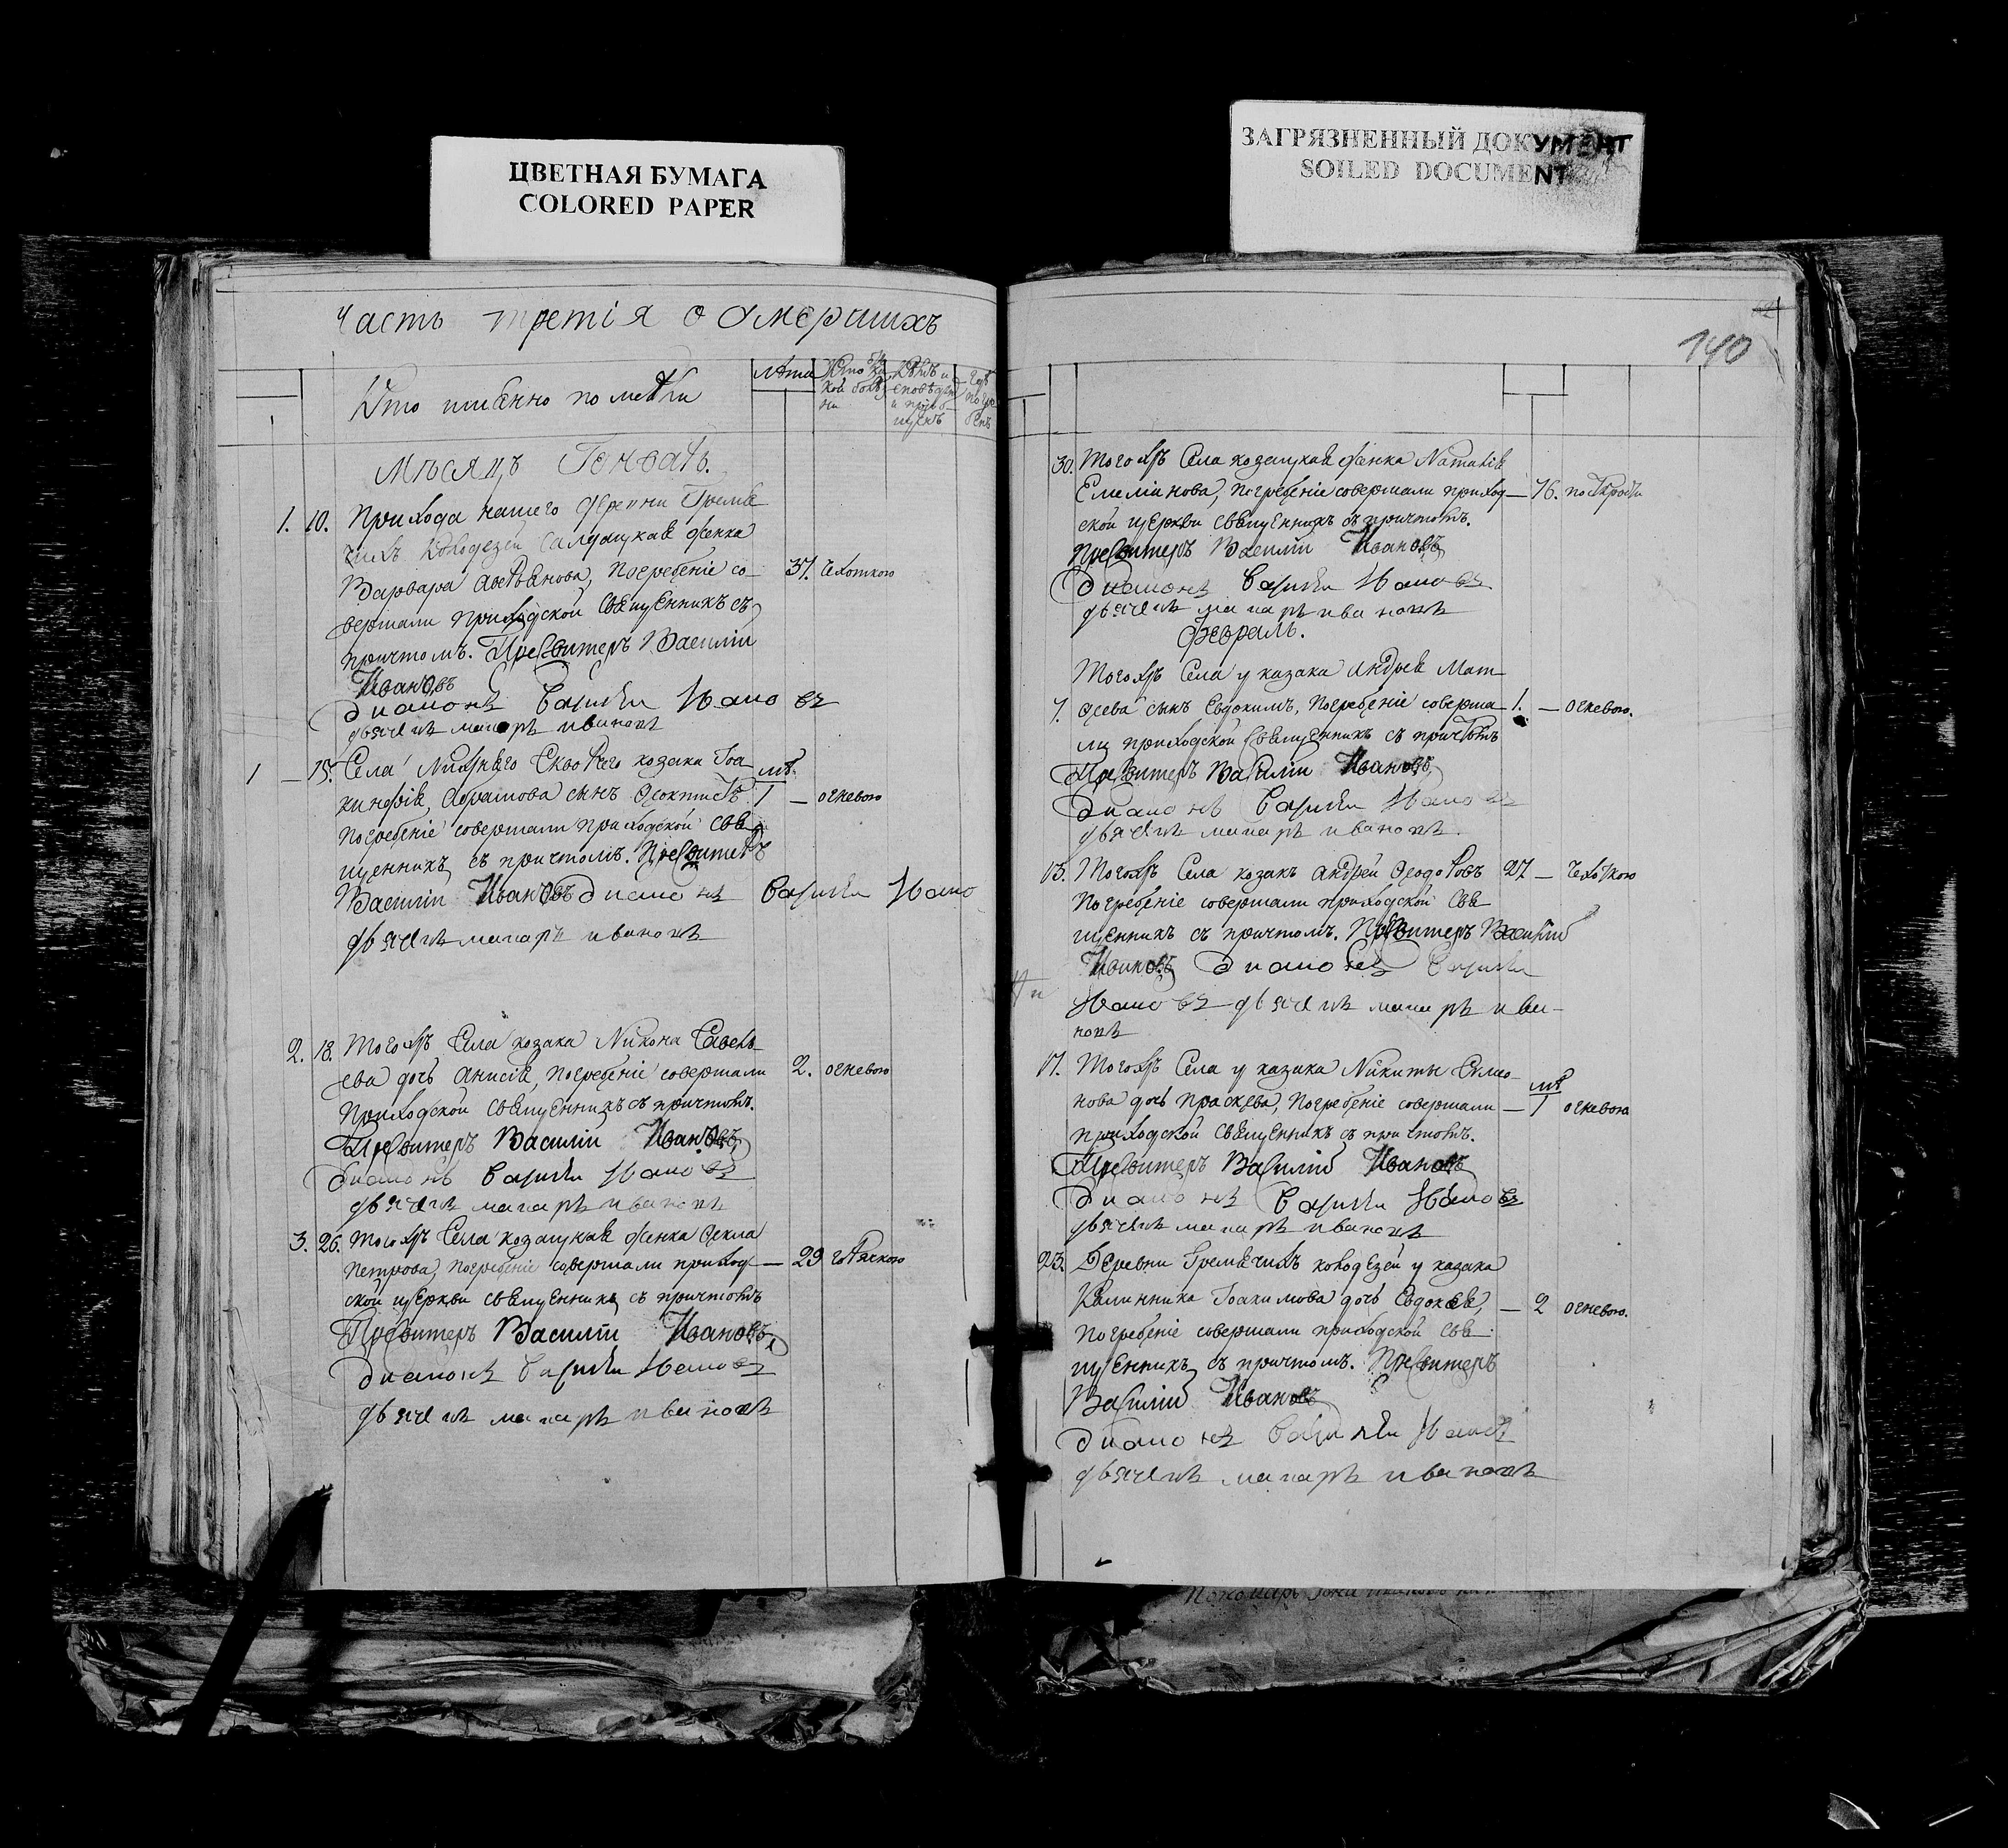 ЦВЕТНАЯ БУМАГА
COLORED PAPER
ЗАГРЯЗНЕННЫЙ ДОКУМЕНТ
SOILED DOCUMENT
Часть третія о умершихъ
Кто имянно померли
Лѣта
мѣсяцъ Генварь.
1. 10. Прихода нашего деревни Гремя
чихъ Колодезей салдацкая женка
Варвара Аверьянова, погребеніе со- 37. чехоткою
вершали приходской священникъ съ
причтомъ. Пресвитеръ Василій
Ивановъ
диаконъ Василей Ивановъ
дьячекъ макаръ ивановъ
1 — 15. Села Нижняго Скворчего козака Іоа
кинфія Абрамова сынъ Феоктистъ 1 — огневою
погребеніе совершали приходской свя
щенникъ съ причтомъ. Пресвитеръ
Василій Ивановъ диаконъ Василей Ивано
дьячекъ макаръ ивановъ
2. 18. Тогожъ Села козака Никона Савель
ева дочь Анисія, погребеніе совершали 2. огневою
приходской священникъ съ причтомъ.
Пресвитеръ Василій Ивановъ
диаконъ Василей Ивановъ
дьячекъ макаръ ивановъ
3. 26. Тогожъ Села козацкая женка Фекла
Петрова, погребеніе совершали приход — 29 горячкою
ской церкви священникъ съ причтомъ
Пресвитеръ Василій Ивановъ
диаконъ Василей Ивановъ
дьячекъ макаръ ивановъ
140
30. Тогожъ Села козацкая женка Наталія
Емеліянова, погребеніе совершали приход — 76.
ской церкви священникъ съ причтомъ.
Пресвитеръ Василій Ивановъ
диаконъ Василей Ивановъ
дьячекъ макаръ ивановъ
Февраль.
Тогожъ Села у казака Андрея Мат
7. феева сынъ Евдокимъ, погребеніе соверша 1. — огневою.
ли приходской священникъ съ причтомъ
Пресвитеръ Василій Ивановъ
диаконъ Василей Ивановъ
дьячекъ макаръ ивановъ.
13. Тогожъ Села козакъ Андрей Федоровъ 27 — чехоткою
погребеніе совершали приходской свя
щенникъ съ причтомъ. Пресвитеръ Василій
Ивановъ диаконъ Василей
Ивановъ дьячекъ макаръ ива-
новъ
17. Тогожъ Села у казака Никиты Симо
нова дочь Праскева, погребеніе совершали — 1 огневою
приходской священникъ съ причтомъ.
Пресвитеръ Василій Ивановъ
диаконъ Василей Ивановъ
дьячекъ макаръ ивановъ
23. Деревни Гремячихъ колодезей у казака
Калинника Іоакимова дочь Евдокея, — 2 огневою.
погребеніе совершали приходской свя
щенникъ съ причтомъ. Пресвитеръ
Василій Ивановъ
диаконъ Василей Ивановъ
дьячекъ макаръ ивановъ